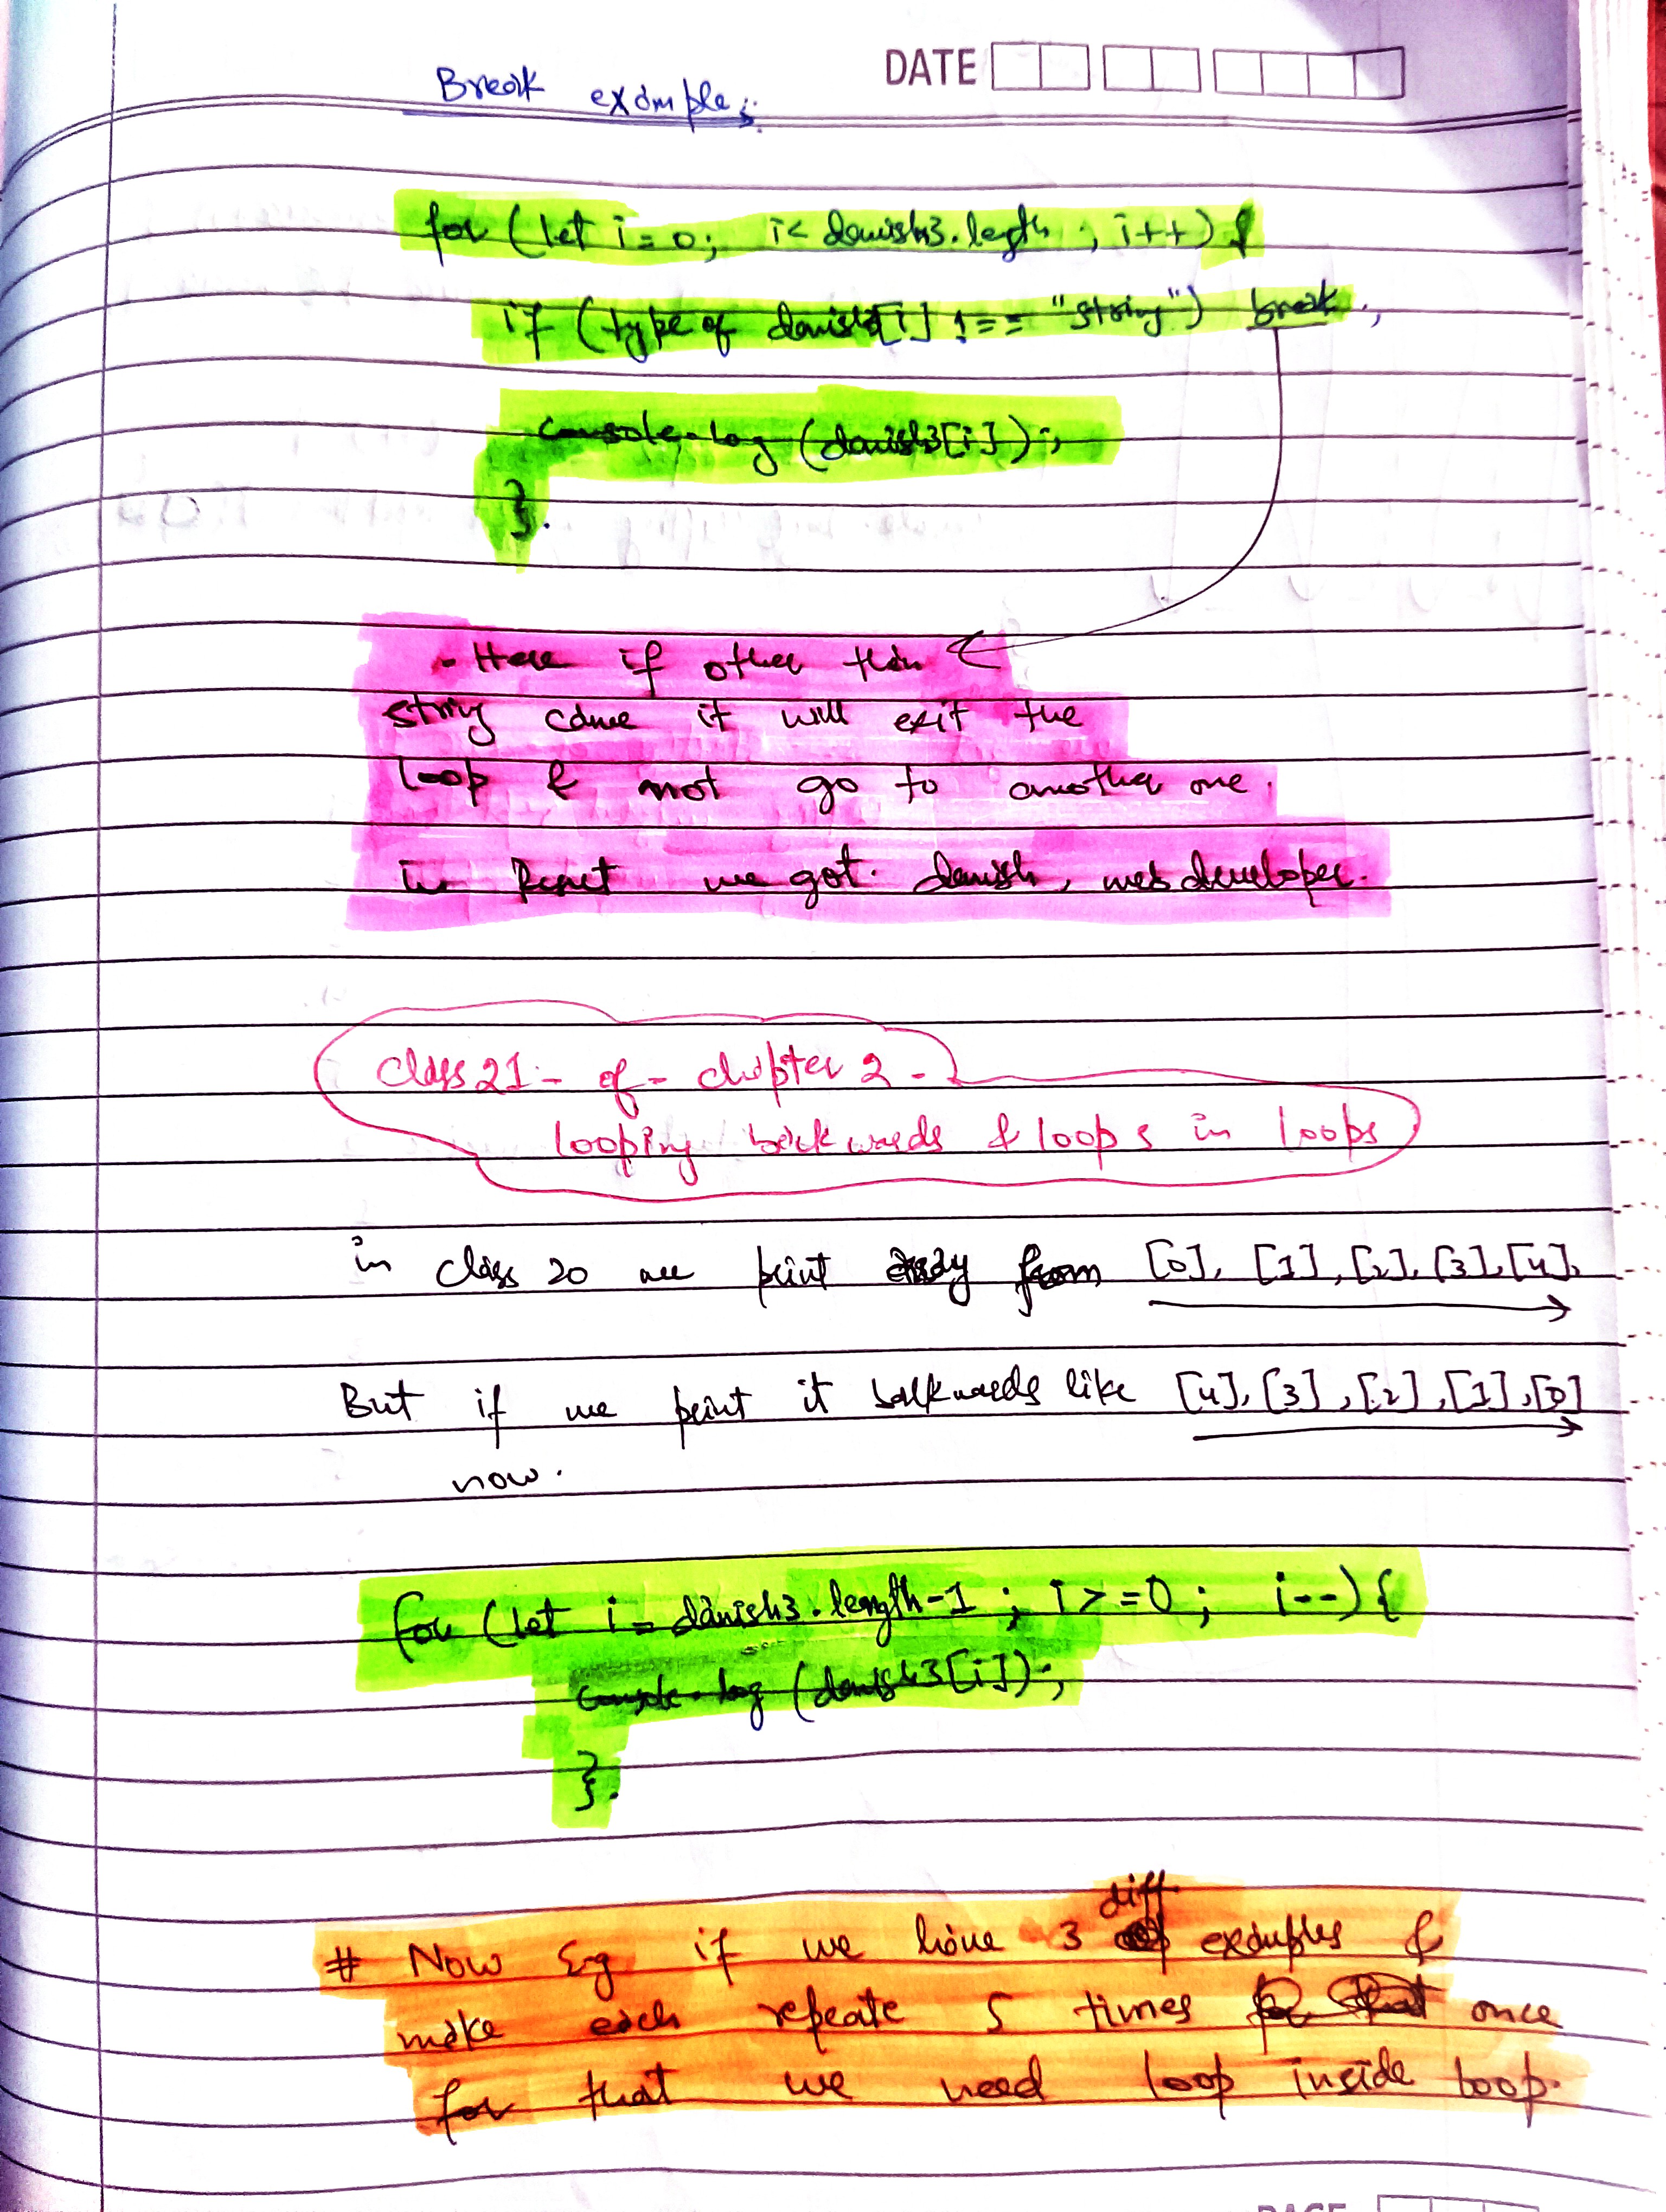 DATE
Break example;
for (let i=0; i< danish3.legth ; i++) {
if (type of danish3[i] !== "string") break;
console.log (danish3[i]);
}.
- Here if other than
string came it will exit the
loop & not go to another one.
in we got. danish, web developer.
class 21 - of - chapter 2 -
looping backwards & loops in loops
in class 20 we print from [0], [1], [2], [3], [4],
But if we print it backwards like [4], [3], [2], [1], [0]
now.
for (let i = danish3.length-1 ; i >= 0 ; i--) {
console.log (danish3[i]);
}.
# Now Eg if we have 3 diff examples &
make each repeate 5 times once
for that we need loop inside loop.
PAGE